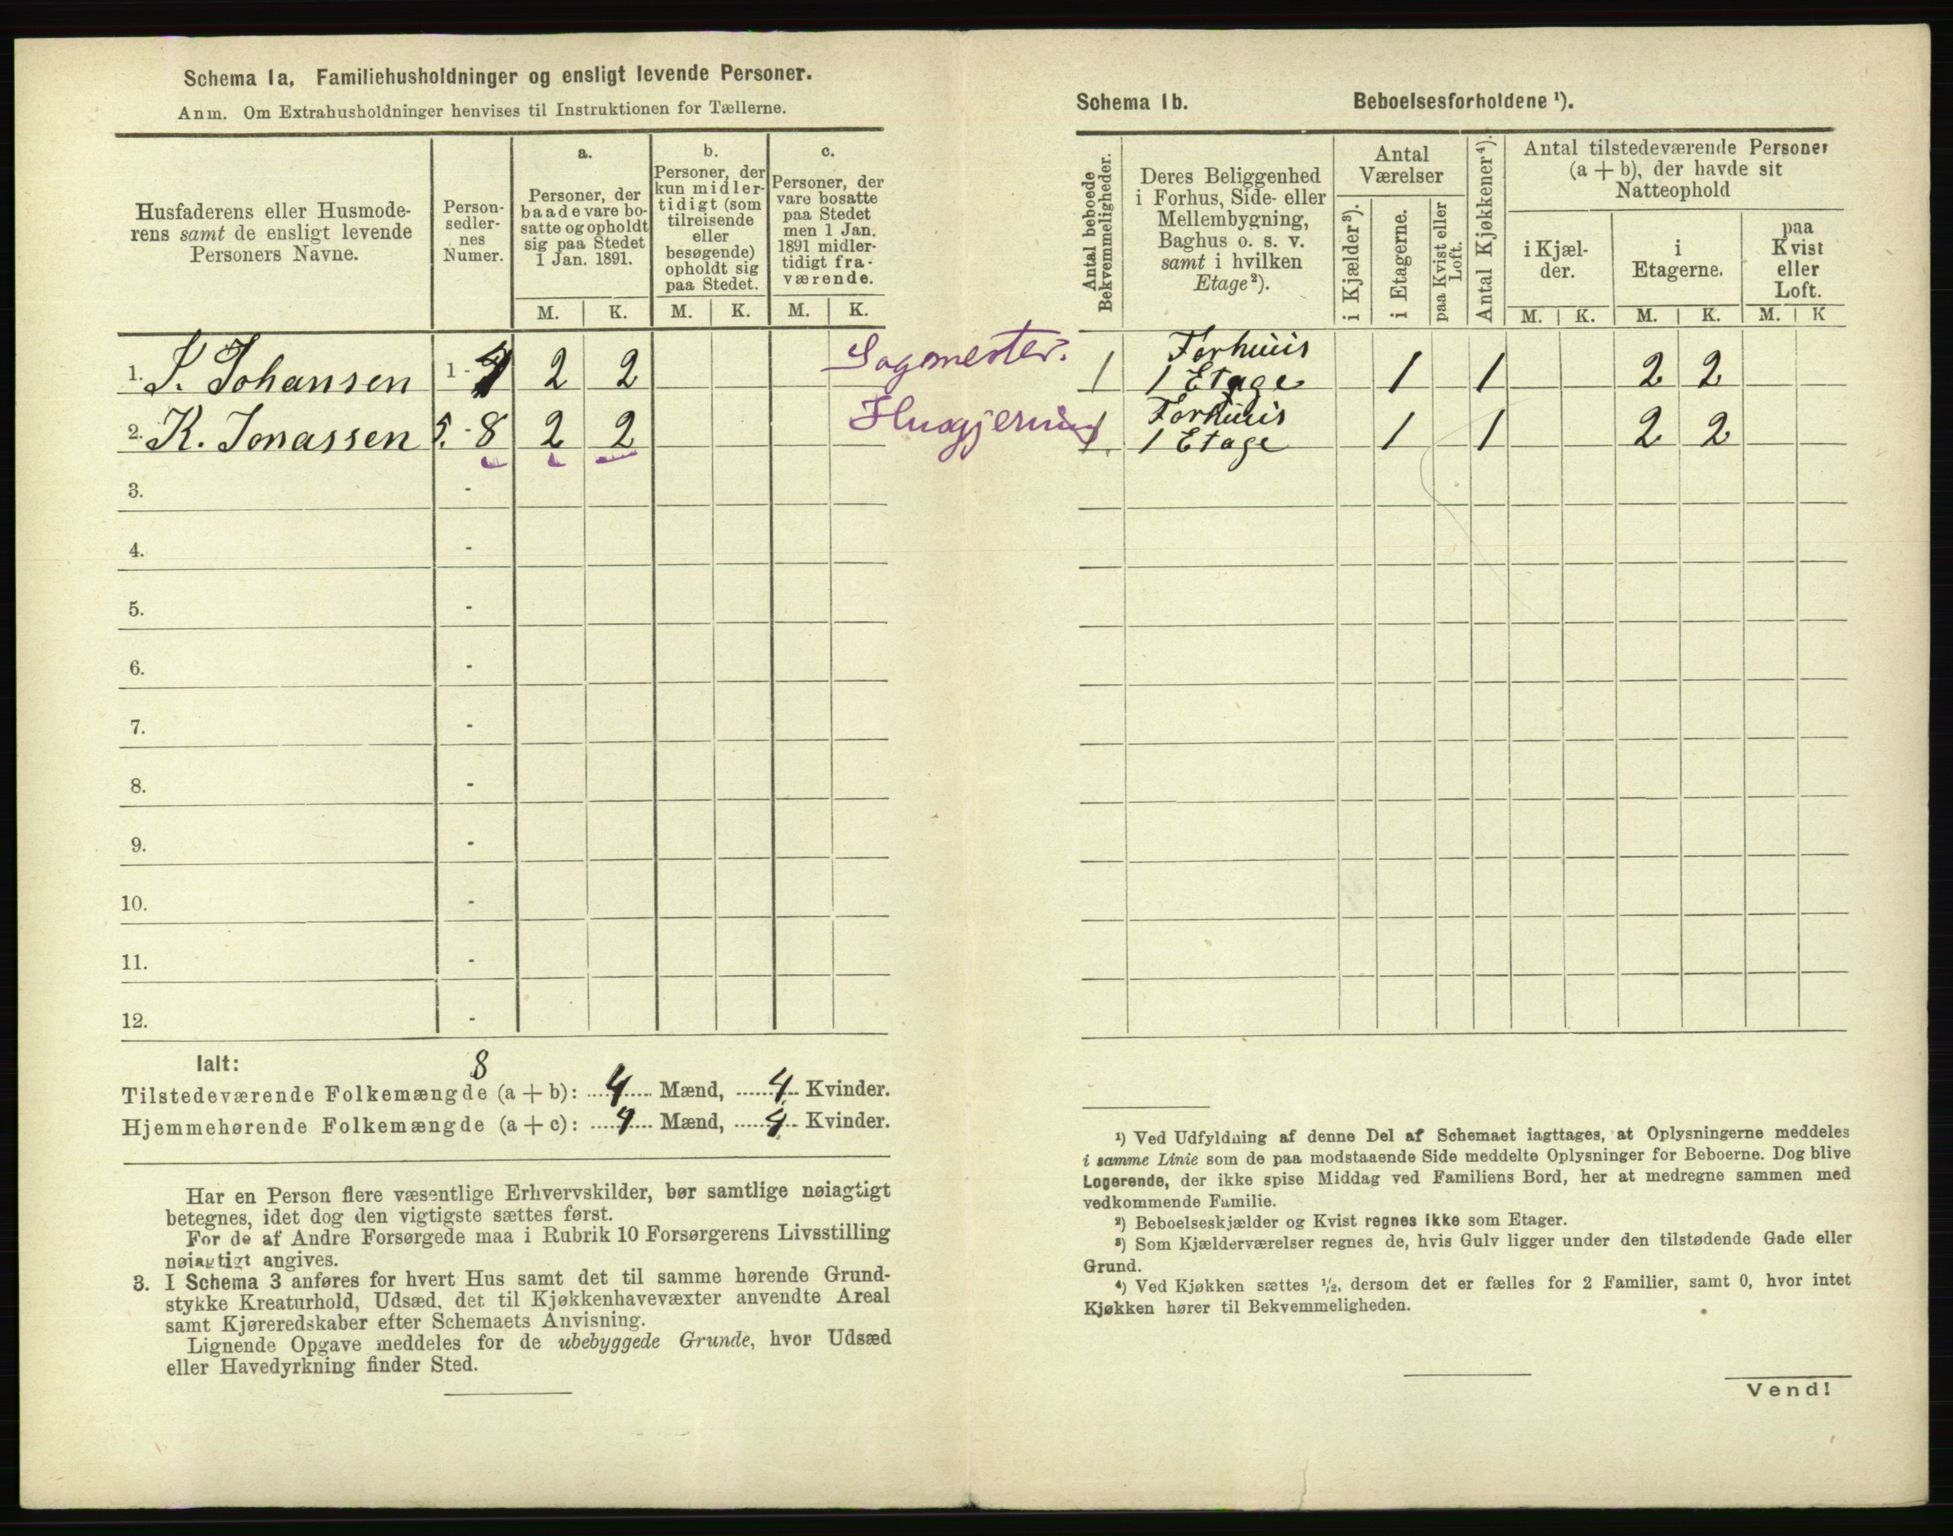 Schema 1a, Familiehusholdninger og ensligt levende Personer.
Anm. Om Extrahusholdninger henvises til Instruktionen for Tællerne.
Husfaderens eller Husmode-
rens samt de ensligt levende
Personers Navne.
Person-
sedler-
nes
Numer.
a.
Personer, der
baade vare bo-
satte og opholdt
sig paa Stedet
1 Jan. 1891.
b.
Personer, der
kun midler-
tidigt (som
tilreisende
eller
besøgende)
opholdt sig
paa Stedet.
c.
Personer, der
vare bosatte
paa Stedet
men 1 Jan.
1891 midler-
tidigt fra-
værende.
M. K. M. K. M. K.
1. S. Johansen 1 - 4 2 2 Sagmester.
2. K. Jonassen 5. - 8 2 2
3. -
4. -
5. -
6. -
7. -
8. -
9. -
10. -
11. -
12. -
Ialt: 8
Tilstedeværende Folkemængde (a + b): 4 Mænd, 4 Kvinder.
Hjemmehørende Folkemængde (a + c): 4 Mænd, 4 Kvinder.
Har en Person flere væsentlige Erhvervskilder, bør samtlige nøiagtigt
betegnes, idet dog den vigtigste sættes først.
For de af Andre Forsørgede maa i Rubrik 10 Forsørgerens Livsstilling
nøiagtigt angives.
3. I Schema 3 anføres for hvert Hus samt det til samme hørende Grund-
stykke Kreaturhold, Udsæd, det til Kjøkkenhavevæxter anvendte Areal
samt Kjøreredskaber efter Schemaets Anvisning.
Lignende Opgave meddeles for de ubebyggede Grunde, hvor Udsæd
eller Havedyrkning finder Sted.
Schema 1b. Beboelsesforholdene ¹).
Antal beboede
Bekvemmeligheder.
Deres Beliggenhed
i Forhus, Side- eller
Mellembygning,
Baghus o. s. v.
samt i hvilken
Etage²).
Antal
Værelser
i Kjælder³).
i Etagerne.
paa Kvist eller
Loft.
Antal Kjøkkener⁴).
Antal tilstedeværende Personer
(a + b), der havde sit
Natteophold
i Kjæl-
der.
i
Etagerne.
paa
Kvist
eller
Loft.
M. K. M. K. M. K
1 Forhuus
1 Etage 1 1 2 2
1 Forhuus
1 Etage 1 1 2 2
¹) Ved Udfyldning af denne Del af Schemaet iagttages, at Oplysningerne meddeles
i samme Linie som de paa modstaaende Side meddelte Oplysninger for Beboerne. Dog blive
Logerende, der ikke spise Middag ved Familiens Bord, her at medregne sammen med
vedkommende Familie.
²) Beboelseskjælder og Kvist regnes ikke som Etager.
³) Som Kjælderværelser regnes de, hvis Gulv ligger under den tilstødende Gade eller
Grund.
⁴) Ved Kjøkken sættes ½, dersom det er fælles for 2 Familier, samt 0, hvor intet
Kjøkken hører til Bekvemmeligheden.
Vend!